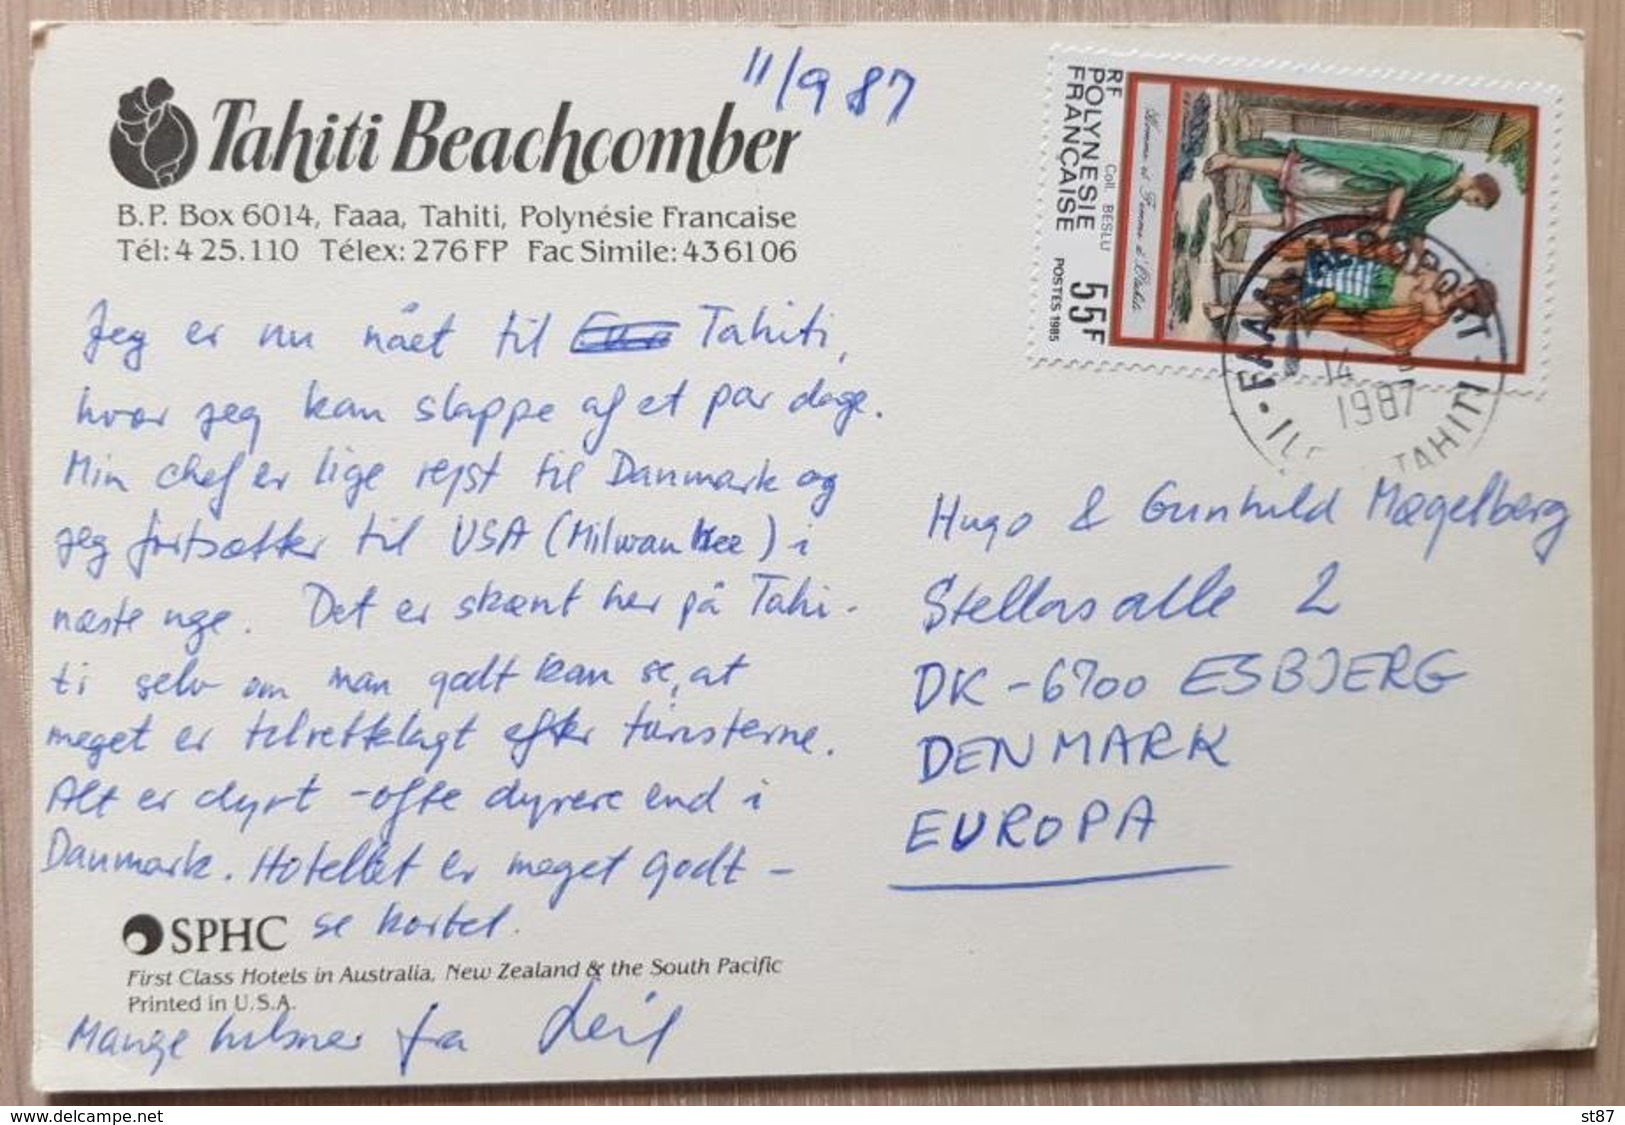 11/9 87
Tahiti Beachcomber
B.P. Box 6014, Faaa, Tahiti, Polynésie Francaise
Tél: 4 25.110 Télex: 276 FP Fac Simile: 43 61 06
Jeg er nu nået til Tahiti,
hvor jeg kan slappe af et par dage.
Min chef er lige rejst til Danmark og
jeg fortsætter til USA (Milwaukee) i
næste uge. Det er skønt her på Tahi-
ti selv om man godt kan se, at
meget er tilrettelagt efter turisterne.
Alt er dyrt - ofte dyrere end i
Danmark. Hotellet er meget godt -
se kortet.
SPHC
First Class Hotels in Australia, New Zealand & the South Pacific
Printed in U.S.A.
Mange hilsner fra Leif
RF
POLYNESIE
FRANÇAISE
Coll. BESLU
55F
POSTES 1985
Homme et Femme d'Otahiti
FAAA AEROPORT
14
1987
TAHITI
Hugo & Gunhild Mægelberg
Stellas alle 2
DK-6700 ESBJERG
DENMARK
EUROPA
www.delcampe.net
st87